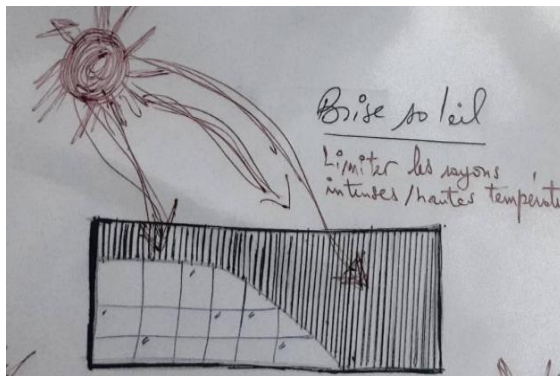 Brise soleil
Limiter les rayons
intenses/hautes températ